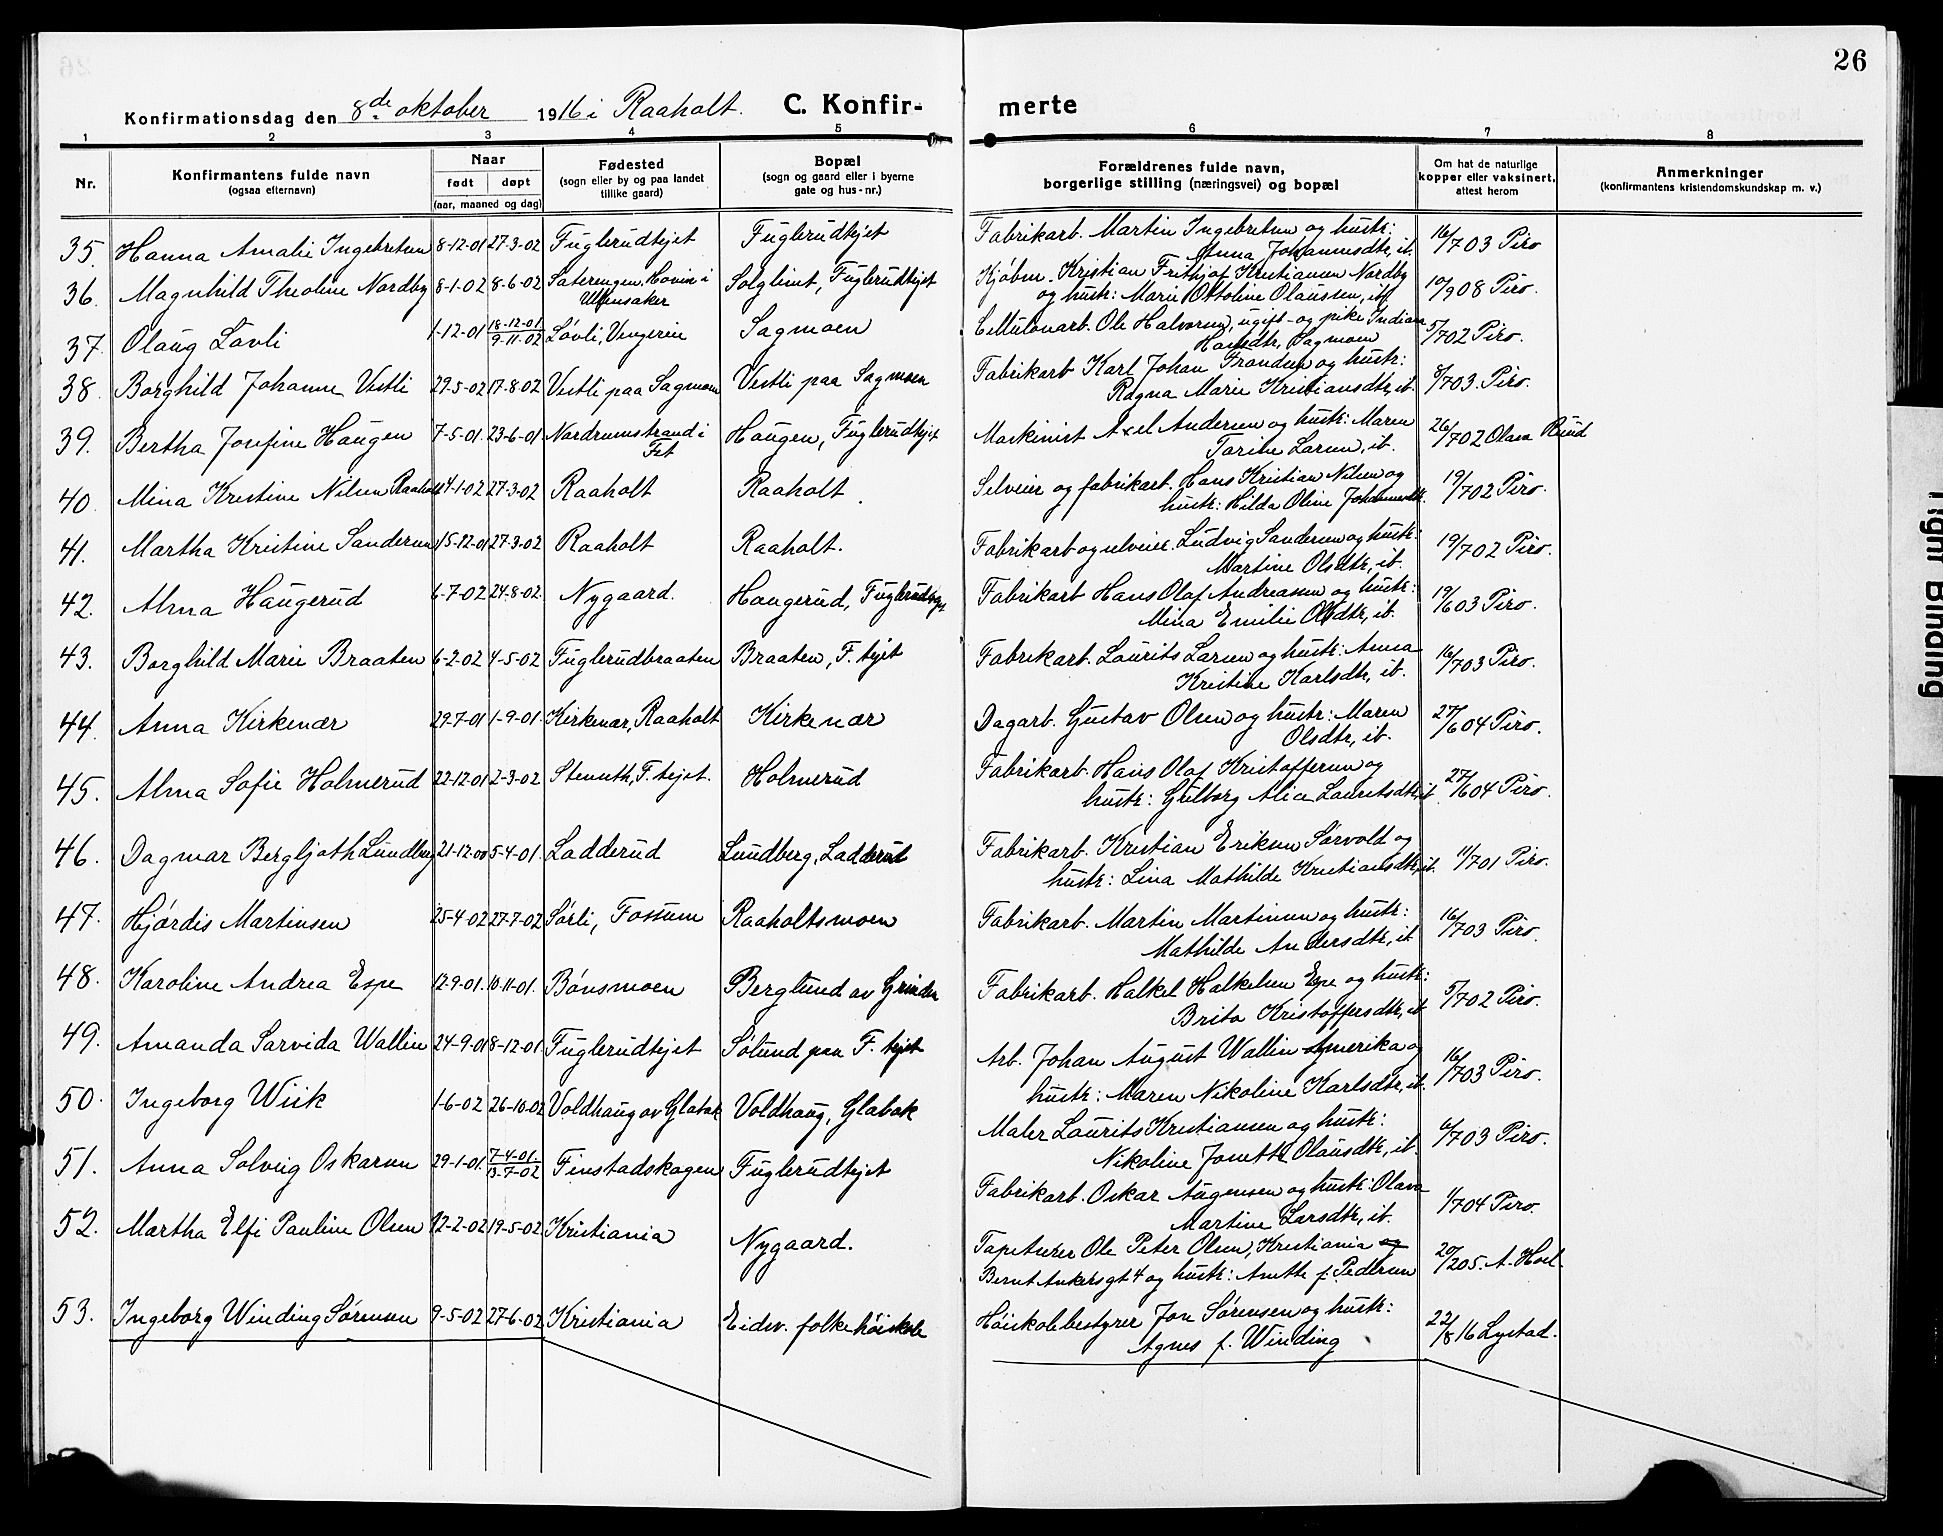 26
Konfirmationsdag den 8de oktober 1916 i Raaholt. C. Konfir- merte
1 2 3 4 5 6 7 8
Nr. Konfirmantens fulde navn (ogsaa efternavn) Naar født døpt (aar, maaned og dag) Fødested (sogn eller by og paa landet tillike gaard) Bopæl (sogn og gaard eller i byerne gate og hus-nr.) Forældrenes fulde navn, borgerlige stilling (næringsvei) og bopæl Om hat de naturlige kopper eller vaksinert, attest herom Anmerkninger (konfirmantens kristendomskundskap m. v.)
35. Hanna Amalie Ingebretsen 8-12-01 27-3-02 Fuglerudtejet Fuglerudtejet Fabrikarb. Martin Ingebretsen og hustr:
Anna Johannesdtr, ib. 16/7 03 Piro
36. Magnhild Theoline Nordby 8-1-02 8-6-02 Sæterengen, Hovin i Ullensaker Solglimt, Fuglerudtejet Kjøbm. Kristian Frithjof Kristiansen Nordby
og hustr: Marie Ottoline Olaussen, ib. 10/9 08 Piro.
37. Olaug Løvli 1-12-01 18-12-01 9-11-02 Løvli, Vengerin Sagmoen Cellulonarb. Ole Halvorsen, ugift og pike Indiana
Hansdtr, Sagmoen 5/7 02 Piro.
38. Borghild Johanne Vestli 29-5-02 17-8-02 Vestli paa Sagmoen Vestli paa Sagmoen Fabrikarb Karl Johan Frandsen og hustr:
Ragna Marie Kristiansdtr, ib. 8/7 03. Piro.
39. Bertha Josefine Haugen 7-5-01. 23-6-01 Nordrumstrand i Fet Haugen, Fuglerudtejet Maskinist Axel Andersen og hustr: Maren
Tarine Larsen, ib. 26/7 02 Olava Ruud
40. Mina Kristine Nilsen Raaholt 4-1-02 27-3-02 Raaholt Raaholt. Selveier og fabrikarb. Hans Kristian Nilsen og
hustr: Hilda Oline Johannesdtr. 19/7 02 Piro.
41. Martha Kristine Sandersen 15-12-01 27-3-02 Raaholt Raaholt. Fabrikarb og selveier. Ludvig Sandersen og hustr:
Martine Olsdtr, ib. 19/7 02 Piro.
42. Alma Haugerud 6-7-02 24-8-02. Nygaard. Haugerud, Fuglerudtejet Fabrikarb Hans Olaf Andreassen og hustr:
Mina Emilie Olsdtr, ib. 19/6 03 Piro.
43. Borghild Marie Braaten 6-2-02 4-5-02 Fuglerudbraaten Braaten, F. tejet Fabrikarb. Laurits Larsen og hustr: Anna
Kristine Karlsdtr, ib. 16/7 03 Piro.
44. Anna Kirkenær 29-7-01 1-9-01. Kirkenær, Raaholt Kirkenær Dagarb. Gustav Olsen og hustr: Maren
Olsdtr, ib. 27/6 04 Piro.
45. Alma Sofie Holmerud 22-12-01 2-3-02 Stensth, F. tejet. Holmerud Fabrikarb. Hans Olaf Kristoffersen og
hustr: Gulborg Alice Lauritsdtr, ib 27/6 04 Piro.
46. Dagmar Bergljoth Lundberg 21-12-00 5-4-01. Ladderud Lundberg, Ladderud Fabrikarb. Kristian Eriksen Sørvold og
hustr: Lina Mathilde Kristiansdtr, ib. 11/7 01 Piro.
47. Hjørdis Martinsen 25-4-02 27-7-02 Sørli, Fossum Raaholtsmoen Fabrikarb. Martin Martinsen og hustr:
Mathilde Andersdtr, ib. 16/7 03 Piro.
48. Karoline Andrea Espe 12-9-01. 10-11-01. Bønsmoen Berglund av Grinder Fabrikarb. Halkel Halkelsen Espe og hustr:
Brita Kristoffersdtr, ib 5/7 02 Piro.
49. Amanda Sarvida Wallin 24-9-01 8-12-01 Fuglerudtejet Sølund paa F. tejet Arb. Johan August Wallin Amerika og
hustr: Maren Nikoline Karlsdtr, ib. 16/7 03 Piro.
50. Ingeborg Wiik 1-6-02 26-10-02 Voldhaug av Glabak Voldhaug, Glabak Maler Laurits Kristiansen og hustr:
Nikoline Jonette Olausdtr, ib. 6/7 03 Piro.
51. Anna Solveig Oskarsen 29-1-01. 7-4-01. 13-7-02 Finstadskogen Fuglerudtejet Fabrikarb. Oskar Augensen og hustr: Olava
Martine Larsdtr, ib. 1/7 04 Piro.
52. Martha Elfi Pauline Olsen 12-2-02 19-5-02 Kristiania Nygaard. Tapetserer Ole Peter Olsen, Kristiania og
Bernt Ankersgt 4 og hustr: Anette f: Pedersen 20/2 05. A. Hoel.
53. Ingeborg Winding Sørensen 9-5-02 27-6-02 Kristiania Eidsv. folkehøiskole Høiskolebestyrer Jon Sørensen og hustr:
Agnes f. Winding 22/8 16 Lystad.
Tight Binding